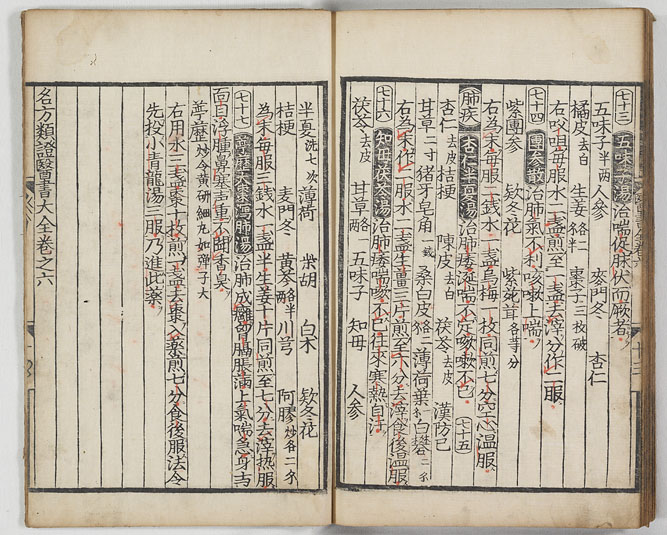 七十三 五味子湯 治喘促脉伏而厥者
五味子半两 人參 麥門冬 杏仁
橘皮去白 生姜各二半 棗子三枚破
右㕮咀每服水一盞煎至一盞去滓分作二服
七十四 團參散 治肺氣不利咳嗽上喘
紫團參 欵冬花 紫菀茸各等分
右為末每服二錢水一盞烏梅一枚同煎七分空心温服
肺疾 杏仁半夏湯 治肺痿涎喘不定咳嗽不已 七十五
杏仁去皮 桔梗 陳皮去白 茯苓去皮 漢防已
甘草二寸 猪牙皂角一鋌 桑白皮各二 薄荷葉一 白礬二分
右為末作一服水二盞生薑三片煎至六分去滓食後温服
七十六 知母茯苓湯 治肺痿喘嗽不已往來寒熱自汗
茯苓去皮 甘草各一两 五味子 知母 人參
半夏洗七次 薄荷 柴胡 白术 欵冬花
桔梗 麥門冬 黄芩各半两 川芎 阿膠炒各二分
為末每服三錢水一盞半生姜十片同煎至七分去滓热服
七十七 葶藶大棗瀉肺湯 治肺成癰胷膈脹滿上氣喘急身与
面目浮腫鼻塞声重不聞香臭
葶藶炒令黄研細丸如弹子大
右用水三盞棗十枚煎一盞去棗入藥煎七分食後服法令
先投小青龍湯三服乃進此藥
名方類證醫書大全卷之六